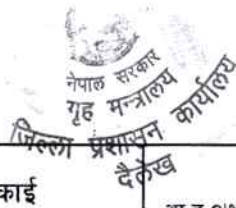 नेपाल सरकार
गृह मन्त्रालय
जिल्ला प्रशासन कार्यालय
दैलेख
काई